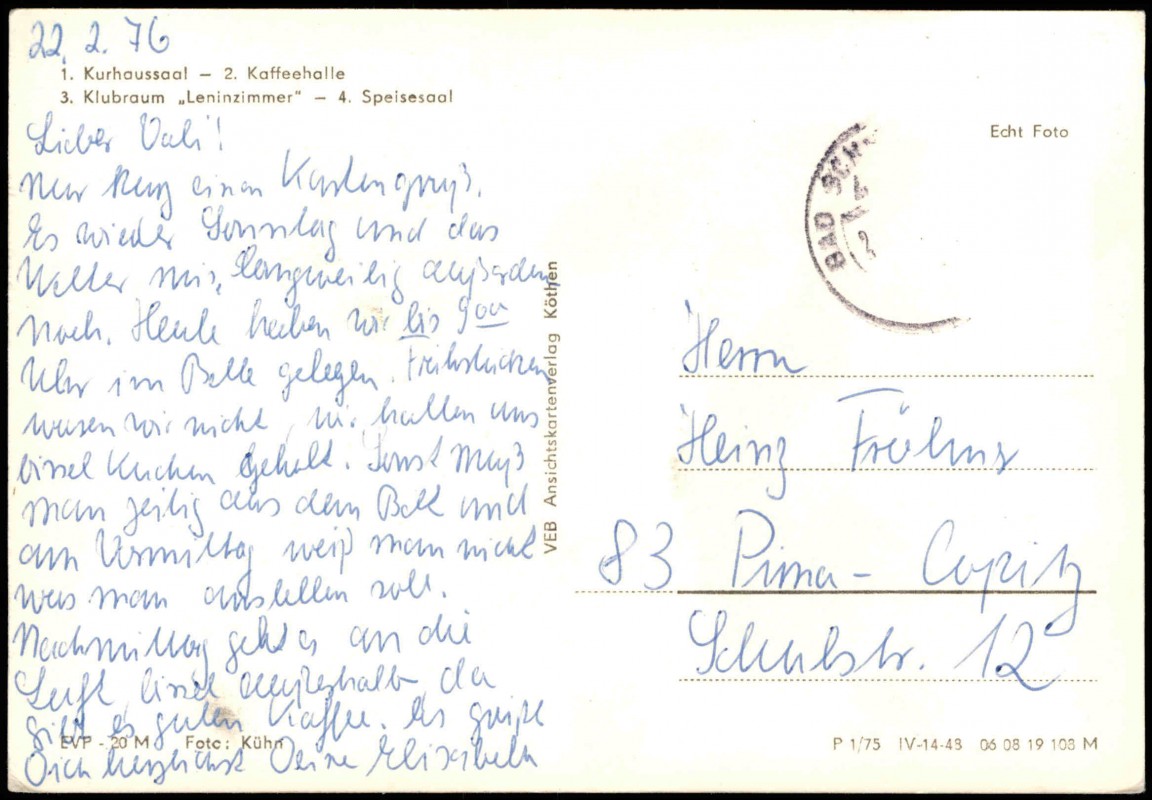 22. 2. 76
1. Kurhaussaal – 2. Kaffeehalle
3. Klubraum „Leninzimmer" – 4. Speisesaal
Lieber Vati!
Nur kurz einen Kartengruß.
Es wieder Sonntag und das
Wetter mis, langweilig außerdem
noch. Heute haben wir bis 9⁰⁰
Uhr im Bette gelegen. Frühstücken
waren wir nicht, wir hatten uns
bissel Kuchen geholt. Sonst muß
man zeitig aus dem Bett und
am Vormittag weiß man nicht
was man anstellen soll.
Nachmittag geht es an die
Luft, bissel außerhalb, da
gibt es guten Kaffee. Es grüßt
Dich herzlichst Deine Elisabeth
EVP - 20 M Foto: Kühn
VEB Ansichtskartenverlag Köthen
Echt Foto
BAD
Herrn
Heinz
83 Pirna - Copitz
Schulstr. 12
P 1/75 IV-14-48 06 08 19 108 M